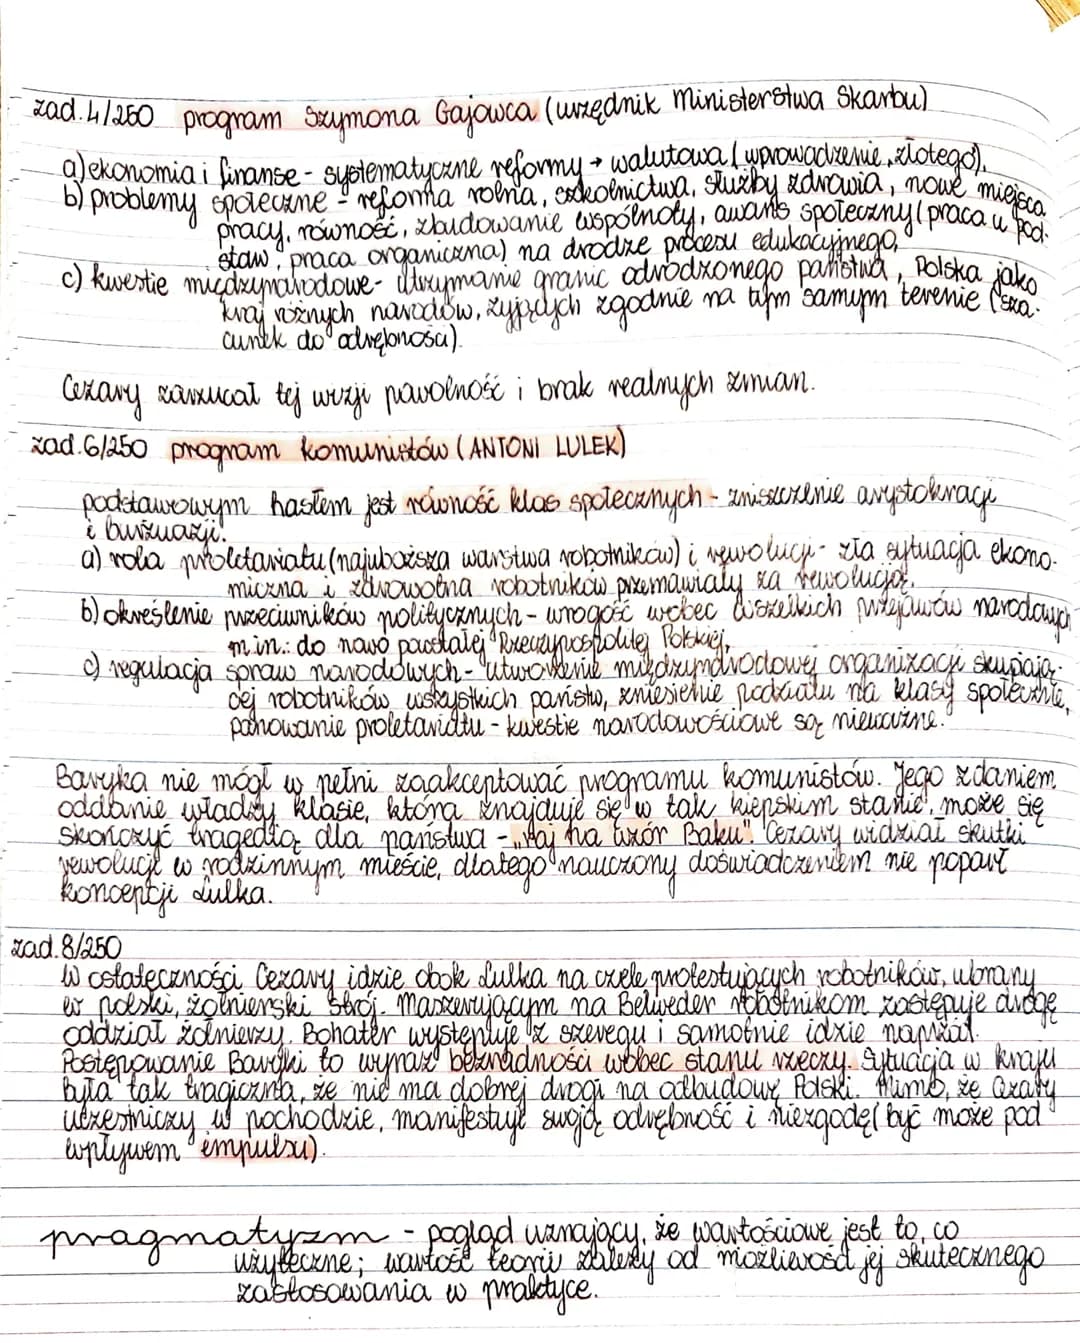 zad.4/250 program Szymona Gajowca (urzędnik Ministerstwa Skarbu)
a) ekonomia i finanse - systematyczne reformy → walutowa (wprowadzenie „złotego),
b) problemy społeczne - reforma rolna, szkolnictwa, służby zdrowia, nowe miejsca
pracy, równość, zbudowanie wspólnoty, awans społeczny (praca u pod-
staw, praca organiczna) na drodze procesu edukacyjnego,
c) kwestie międzynarodowe - utrzymanie granic odrodzonego państwa, Polska jako
kraj różnych narodów, żyjących zgodnie na tym samym terenie (sza-
cunek do odrębności).
Cezary zarzucał tej wizji powolność i brak realnych zmian.
zad.6/250 program komunistów (ANTONI LULEK)
podstawowym hasłem jest równość klas społecznych - zniszczenie arystokracji
i burżuazji.
a) rola proletariatu (najuboższa warstwa robotników) i rewolucji - zła sytuacja ekono-
miczna i zdrowotna robotników przemawiały za rewolucją,
b) określenie przeciwników politycznych - wrogość wobec wszelkich przejawów narodowych
m.in.: do nowo powstałej Rzeczypospolitej Polskiej,
c) regulacja spraw narodowych - utworzenie międzynarodowej organizacji skupiają-
cej robotników wszystkich państw, zniesienie podziału na klasy społeczne,
panowanie proletariatu - kwestie narodowościowe są nieważne.
Baryka nie mógł w pełni zaakceptować programu komunistów. Jego zdaniem
oddanie władzy klasie, która znajduje się w tak kiepskim stanie, może się
skończyć tragedią dla państwa - „raj na wzór Baku". Cezary widział skutki
rewolucji w rodzinnym mieście, dlatego nauczony doświadczeniem nie poparł
koncepcji Lulka.
zad.8/250
W ostateczności Cezary idzie obok Lulka na czele protestujących robotników, ubrany
w polski, żołnierski strój. Maszerującym na Belweder robotnikom zastępuje drogę
oddział żołnierzy. Bohater występuje z szeregu i samotnie idzie naprzód.
Postępowanie Baryki to wyraz bezradności wobec stanu rzeczy. Sytuacja w kraju
była tak tragiczna, że nie ma dobrej drogi na odbudowę Polski. Mimo, że Cezary
uczestniczy w pochodzie, manifestuje swoją odrębność i niezgodę (być może pod
wpływem impulsu).
pragmatyzm - pogląd uznający, że wartościowe jest to, co
użyteczne; wartość teorii zależy od możliwości jej skutecznego
zastosowania w praktyce.